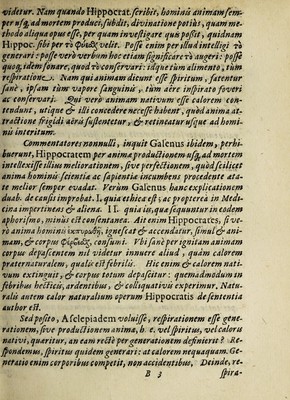 videtur. Nam quando Hippocrat. scribit, hominū animam sem-
per usq; ad mortem produci, subdit, divinatione potiùs, quam me-
thodo aliqua opus esse, per quam investigare quis possit, quidnam
Hippoc. sibi per τὸ φύεσθαι velit. Posse enim per illud intelligi τὸ
generari: posse verò verbum hoc etiam significare τὸ augeri: posse
quoq; idem sonare, quod τὸ conservari: idque tùm alimento, tùm
respiratione. Nam qui animam dicunt esse spiritum, fatentur
sanè, ipsam tùm vapore sanguinis, tùm aëre inspirato foveri
ac conservari. Qui verò animam nativum esse calorem con-
tendunt, utíque & illi concedere necesse habent, quòd anima at-
tractione frigidi aëris sustentetur, & retineatur usque ad homi-
nis interitum.
Commentatores nonnulli, inquit Galenus ibidem, perhi-
buerunt, Hippocratem per anima productionem usq; ad mortem
intellexisse illius meliorationem, sive perfectionem, quòd scilicet
anima hominis scientia ac sapientia incumbens procedente æta-
te melior semper evadat. Verùm Galenus hanc explicationem
duab. de causis improbat. I. quia ethica est, ac propterea in Medi-
cina impertinens & aliena. II. quia iis, quæ sequuntur in eodem
aphorismo, minùs est consentanea. Ait enim Hippocrates, si ve-
rò anima hominis ignescat & accendatur, simul & ani-
mam, & corpus consumi. Vbi sanè per ignitam animam
corpus depascentem nil videtur innuere aliud, quàm calorem
præternaturalem, qualis est febrilis. Hic enim & calorem nati-
vum extinguit, & corpus totum depascitur: quemadmodum in
febribus hecticis, ardentibus, & colliquativis experimur. Natu-
ralis autem calor naturalium operum Hippocratis de sententia
author est.
Sed posito, Asclepiadem voluisse, respirationem esse gene-
rationem, sive productionem anima, h. e. vel spiritus, vel caloris
nativi, quæritur, an eam rectè per generationem definierit? Re-
spondemus, spiritus quidem generari: at calorem nequaquam. Ge-
neratio enim corporibus competit, non accidentibus. Deinde, re-
B 3 spira-